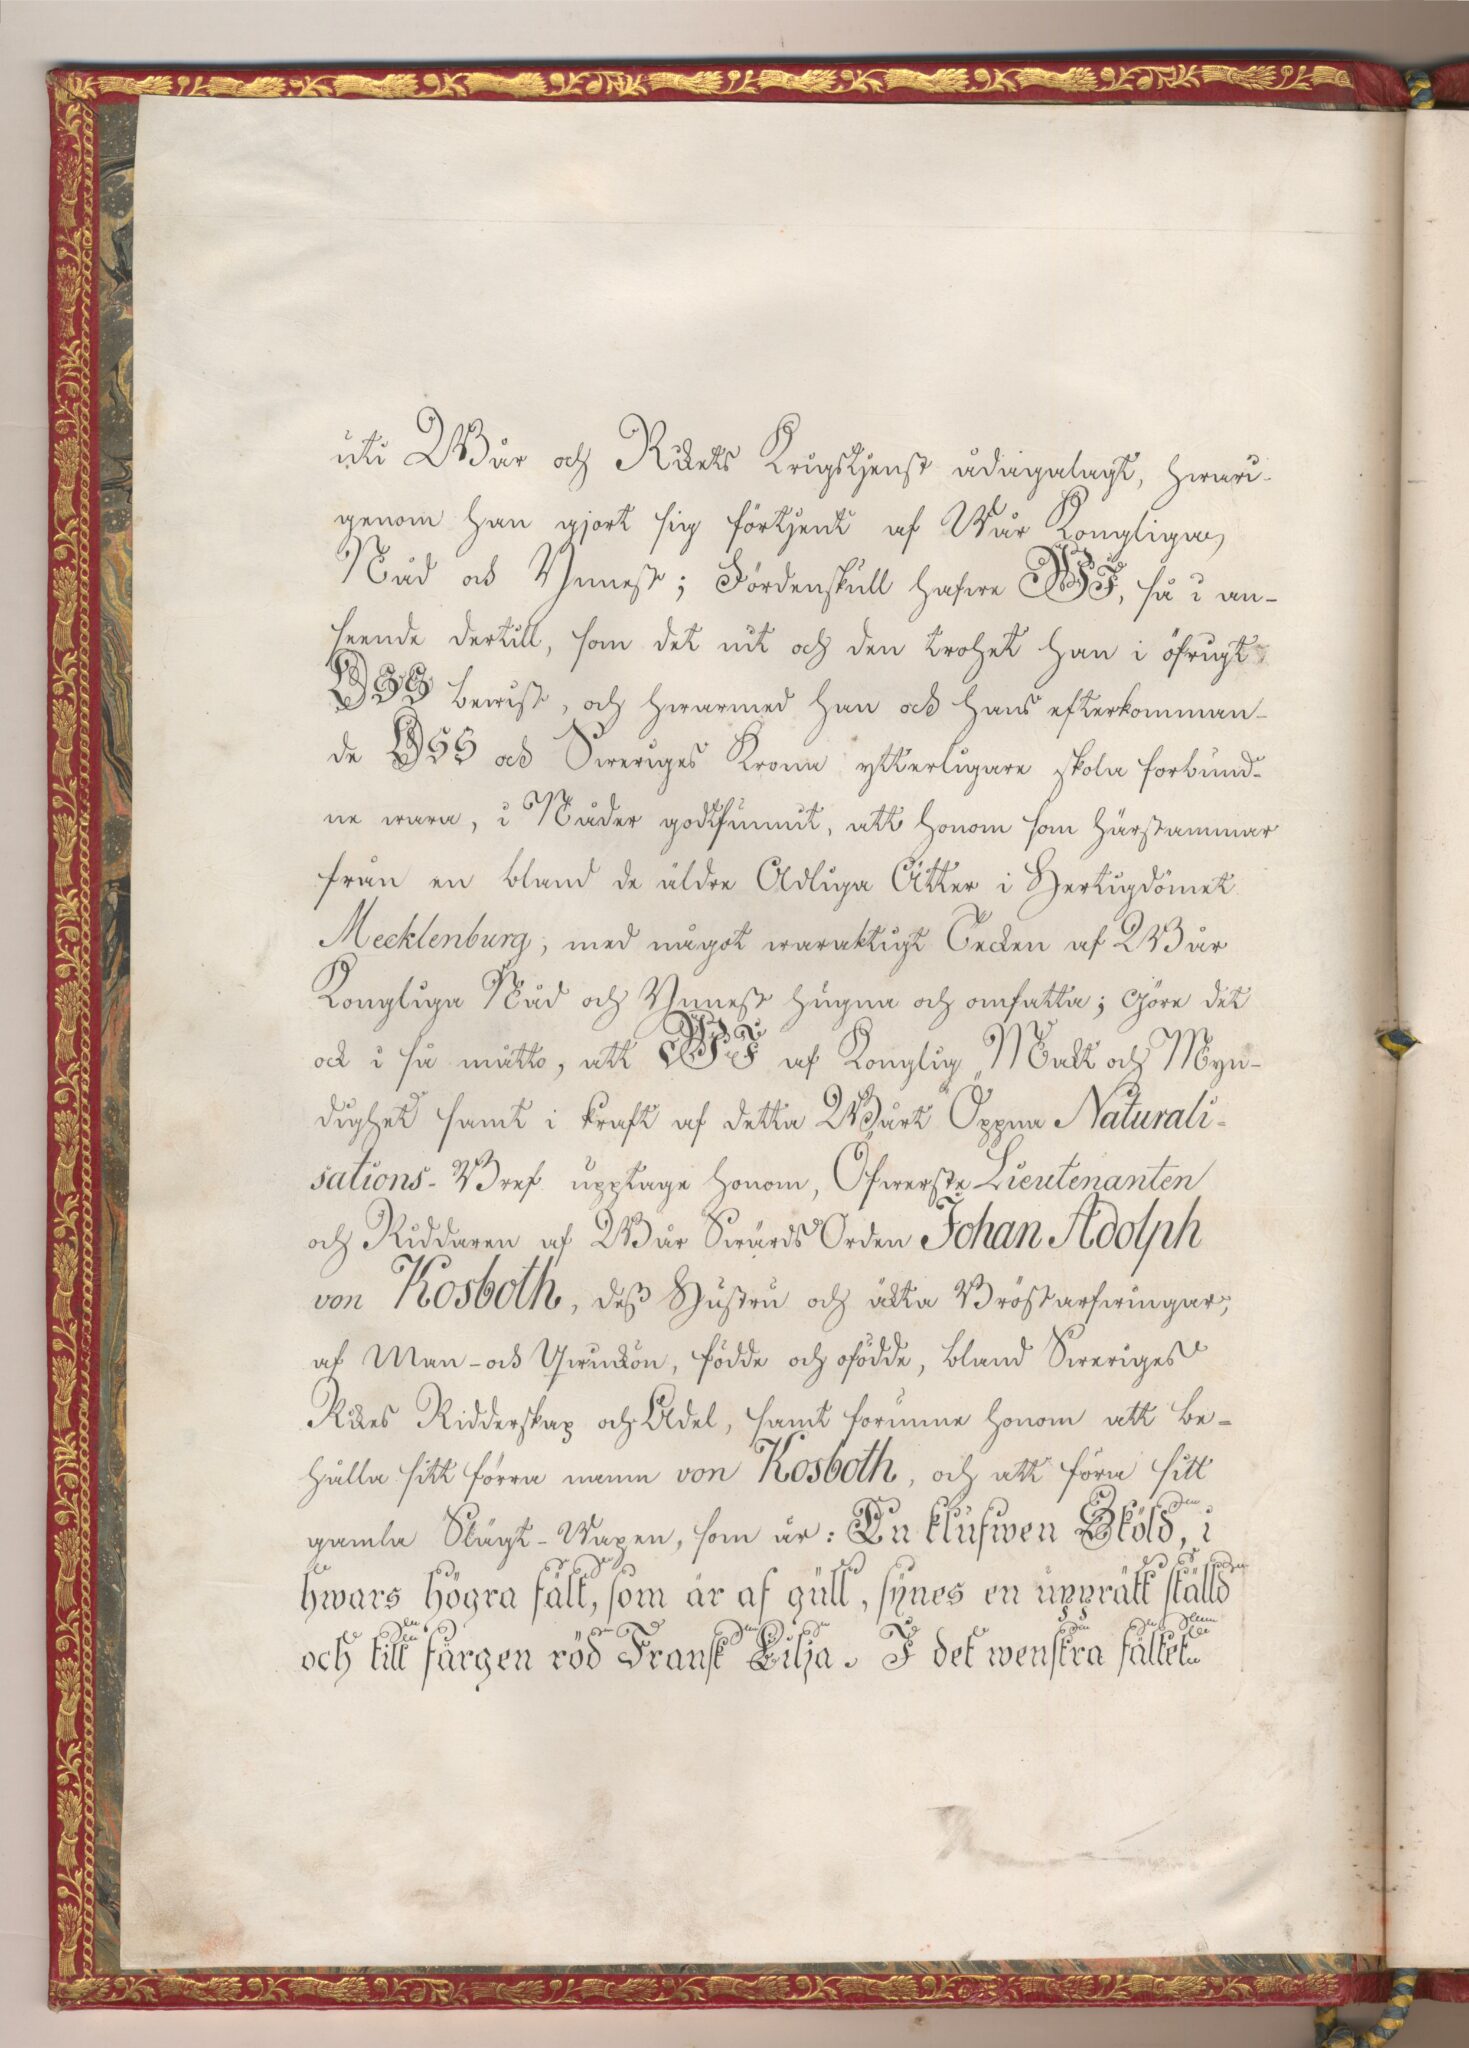 uti Wår och Rikets Krigstjenst ådagalagt, hwari-
genom han gjort sig förtjent af Wår Kongliga
Nåd och Ynnest; Fördenskull hafwe WI, så i an-
seende dertill, som det nit och den trohet han i öfrigt
OSS bewist, och hwarmed han och hans efterkomman-
de OSS och Sweriges Krona ytterligare skola förbund-
ne wara, i Nåder godtfunnit, att honom som härstammar
från en bland de äldre Adliga Ätter i Hertigdömet
Mecklenburg, med något waraktigt Tecken af Wår
Kongliga Nåd och Ynnest hugna och omfatta; Göre det
ock i så måtto, att WI af Konglig Makt och Myn-
dighet samt i kraft af detta Wårt Öppna Naturali-
sations-Bref upptage honom, Öfwerste Lieutenanten
och Riddaren af Wår Swärds Orden Johan Adolph
von Kosboth, dess Hustru och äkta Bröstarfwingar,
af Man- och Qwinkön, födde och ofödde, bland Sweriges
Rikes Ridderskap och Adel, samt förunne honom att be-
hålla sitt förra namn von Kosboth, och att föra sitt
gamla Slägt-Wapen, som är: En klufwen Sköld, i
hwars högra fält, som är af gull, synes en upprätt ställd
och till färgen röd Fransk Lilja. I det wenstra fältet